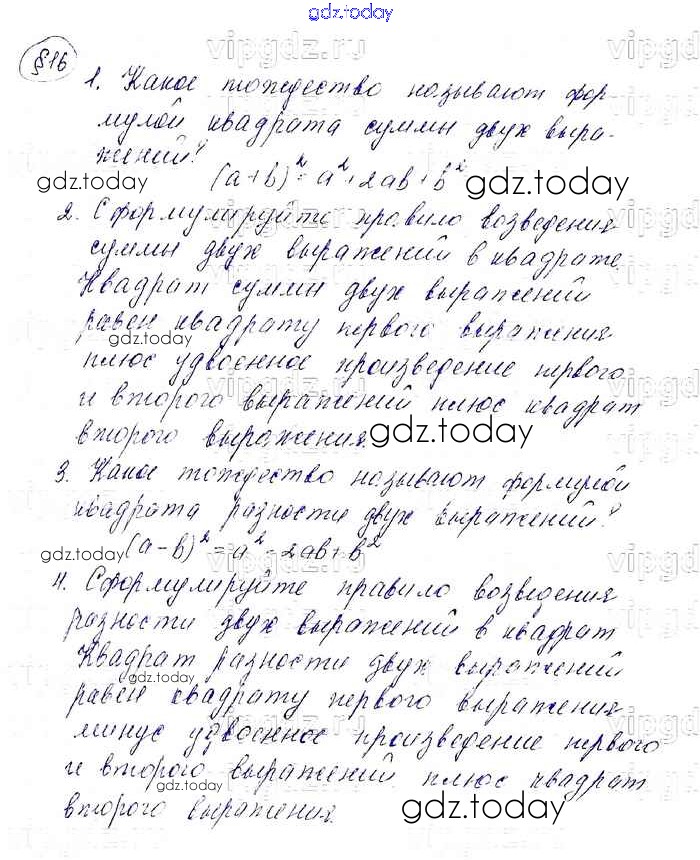 gdz.today
§16
vipgdz.ru
1. Какое тождество называют фор-
мулой квадрата суммы двух выра-
жений?
(a+b)² = a² + 2ab + b²
gdz.today
gdz.today
2. Сформулируйте правило возведения
суммы двух выражений в квадрате.
Квадрат суммы двух выражений
равен квадрату первого выражения
gdz.today
плюс удвоенное произведение первого
и второго выражений плюс квадрат
второго выражения.
gdz.today
3. Какое тождество называют формулой
квадрата разности двух выражений?
gdz.today
(a-b)² = a² - 2ab + b²
4. Сформулируйте правило возведения
разности двух выражений в квадрат
Квадрат разности двух выражений
gdz.today
равен квадрату первого выражения
минус удвоенное произведение первого
и второго выражений плюс квадрат
второго выражения.
gdz.today